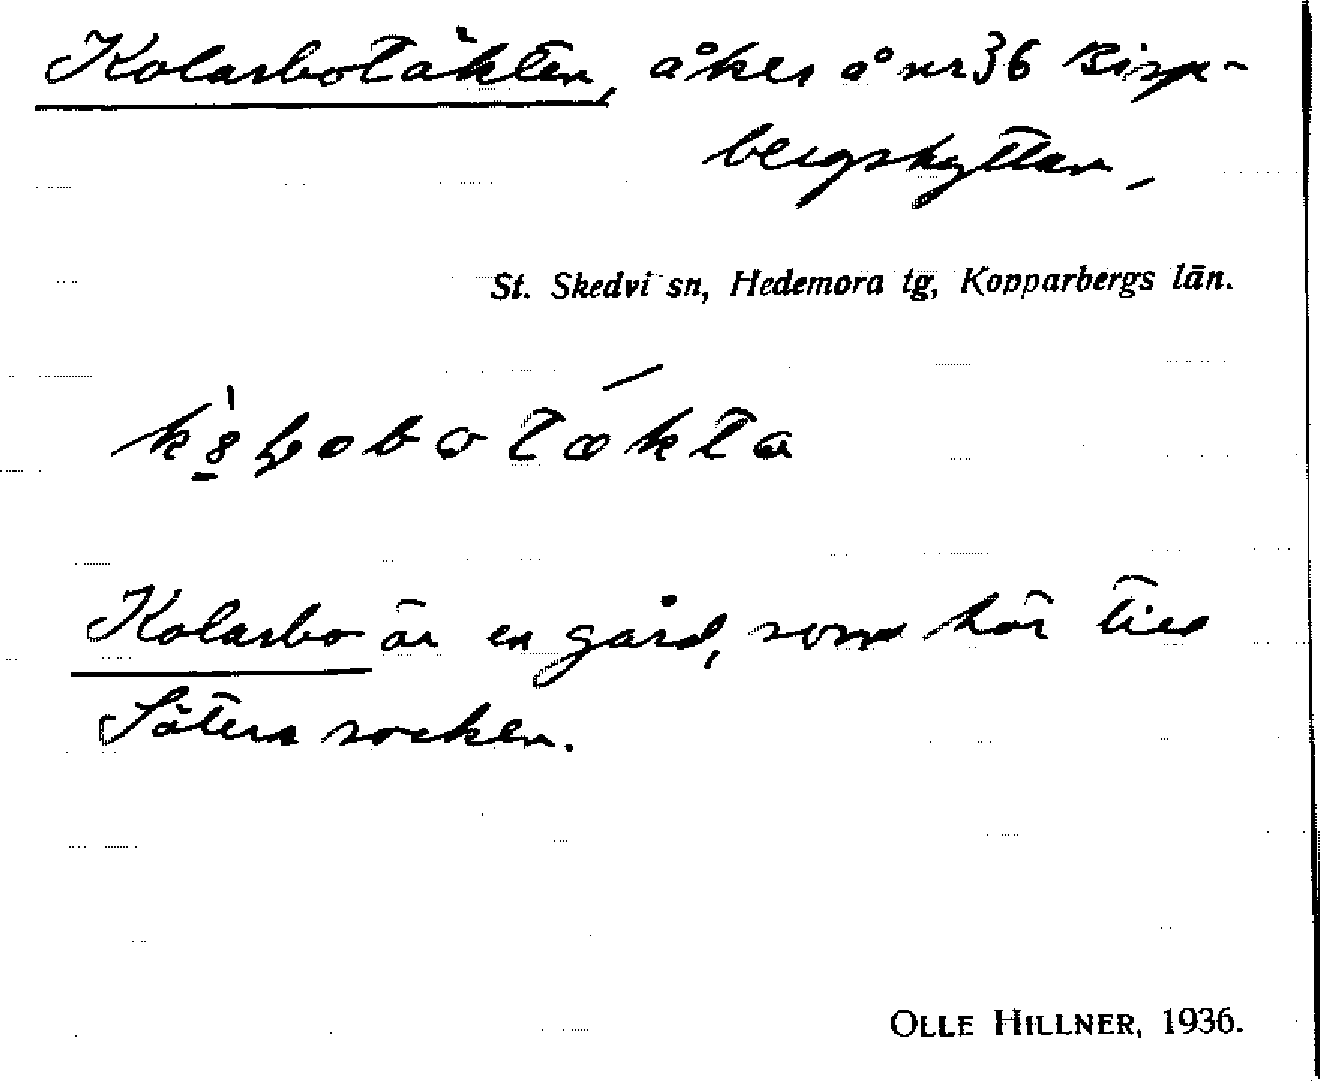 Kolarbotäkten, åker å nr 36 Bisp-
bergshyttan,
St. Skedvi sn, Hedemora tg, Kopparbergs län.
Kolarbo är en gård, som hör till
Säters socken.
OLLE HILLNER, 1936.